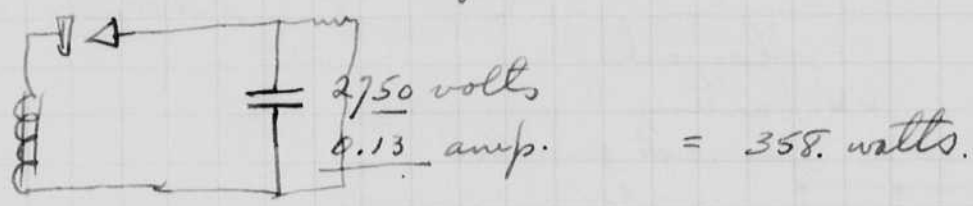 2750 volts
0.13 amp. = 358. watts.